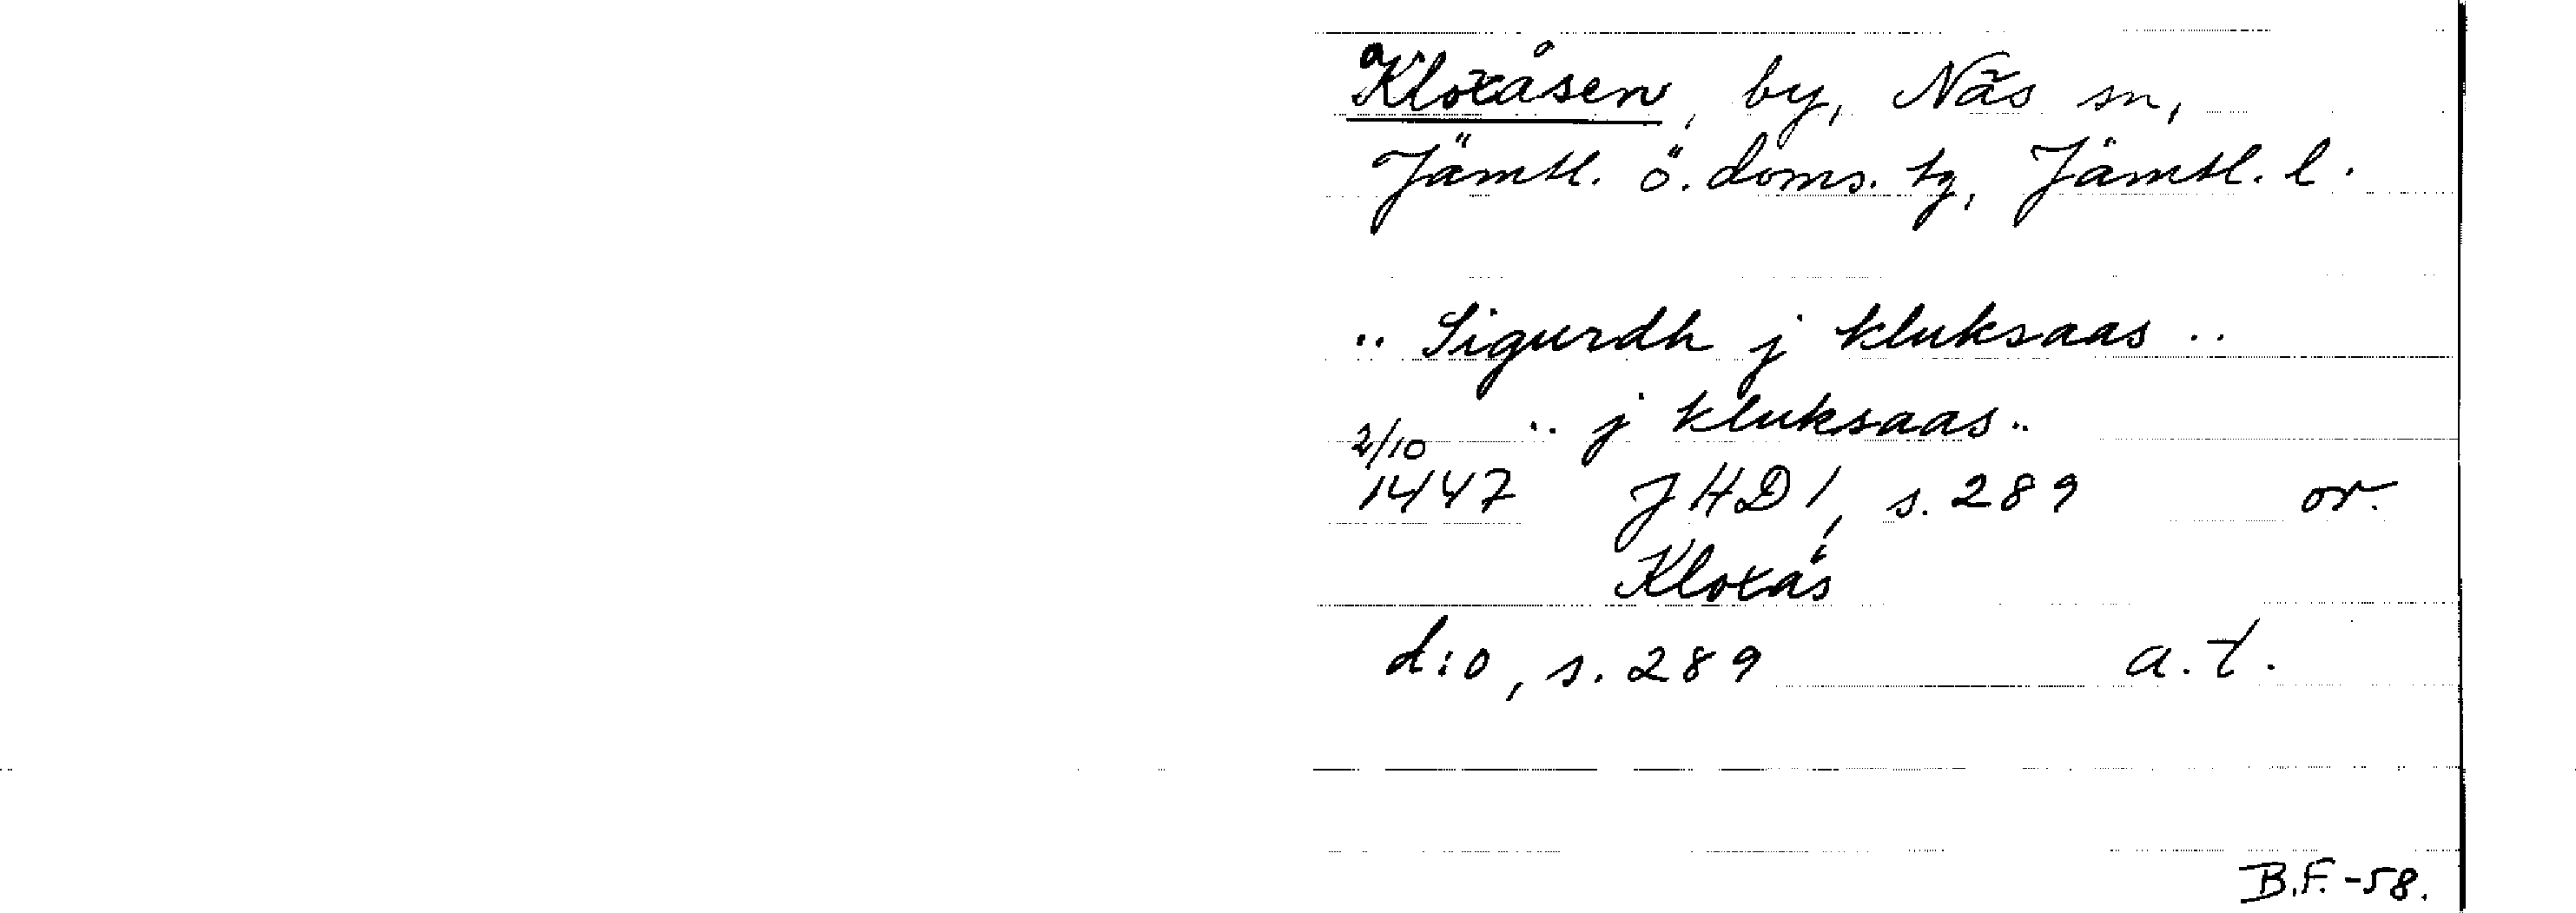 Kloxåsen, by, Näs sn,
Jämtl. ö. doms. tg, Jämtl. l.
.. Sigurdh j kluksaas ..
2/10 .. j kluksaas ..
1447 JHD 1, s. 289 or.
Kloxås
d:o, s. 289 a.t.
B.F. -58.